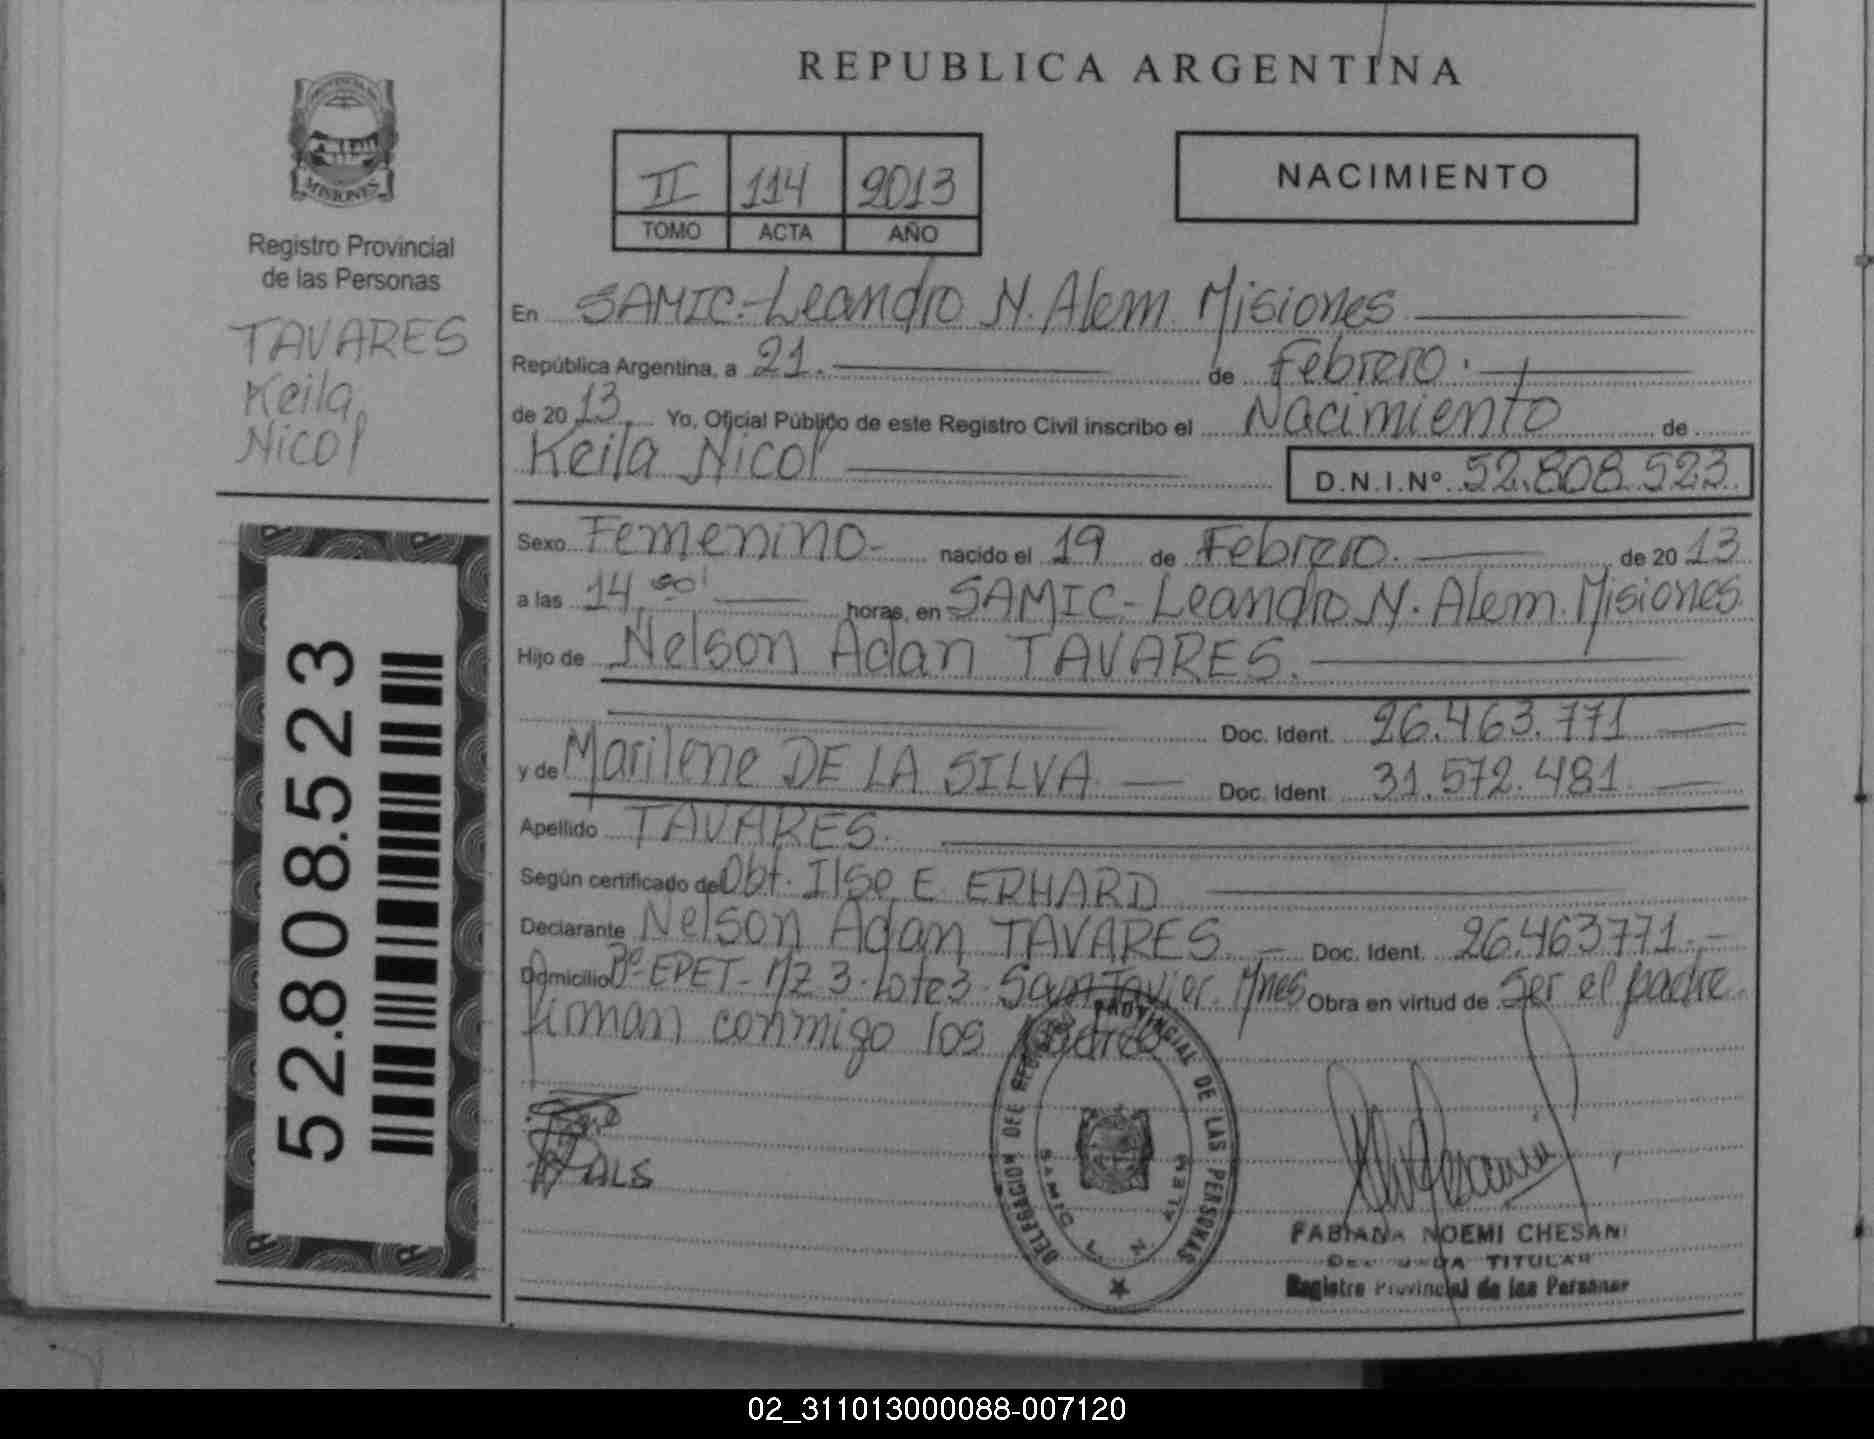 REPUBLICA ARGENTINA
PROVINCIA DE
MISIONES
Registro Provincial
de las Personas
TAVARES
Keila
Nicol
52.808.523
II 114 2013
TOMO ACTA AÑO
NACIMIENTO
En SAMIC-Leandro N. Alem Misiones
República Argentina, a 21. de Febrero.
de 20 13 Yo, Oficial Público de este Registro Civil inscribo el Nacimiento de
Keila Nicol D.N.I.Nº 52.808.523
Sexo Femenino- nacido el 19 de Febrero. de 20 13
a las 14,00' horas, en SAMIC-Leandro N. Alem. Misiones.
Hijo de Nelson Adan TAVARES.
Doc. Ident. 26.463.771
y de Marilene DE LA SILVA Doc. Ident 31.572.481
Apellido TAVARES.
Según certificado de Obt. Ilse E ERHARD
Declarante Nelson Adan TAVARES.- Doc. Ident. 26.463771.-
Domicilio Bº-EPET-Mz 3-Lote 3-San Javier. Mnes Obra en virtud de Ser el padre.
firman conmigo los Padres
DELEGACION DEL REGISTRO PROVINCIAL DE LAS PERSONAS
SAMIC L. N. ALEM
FABIANA NOEMI CHESANI
TITULAR
Registro Provincial de las Personas
02_311013000088-007120